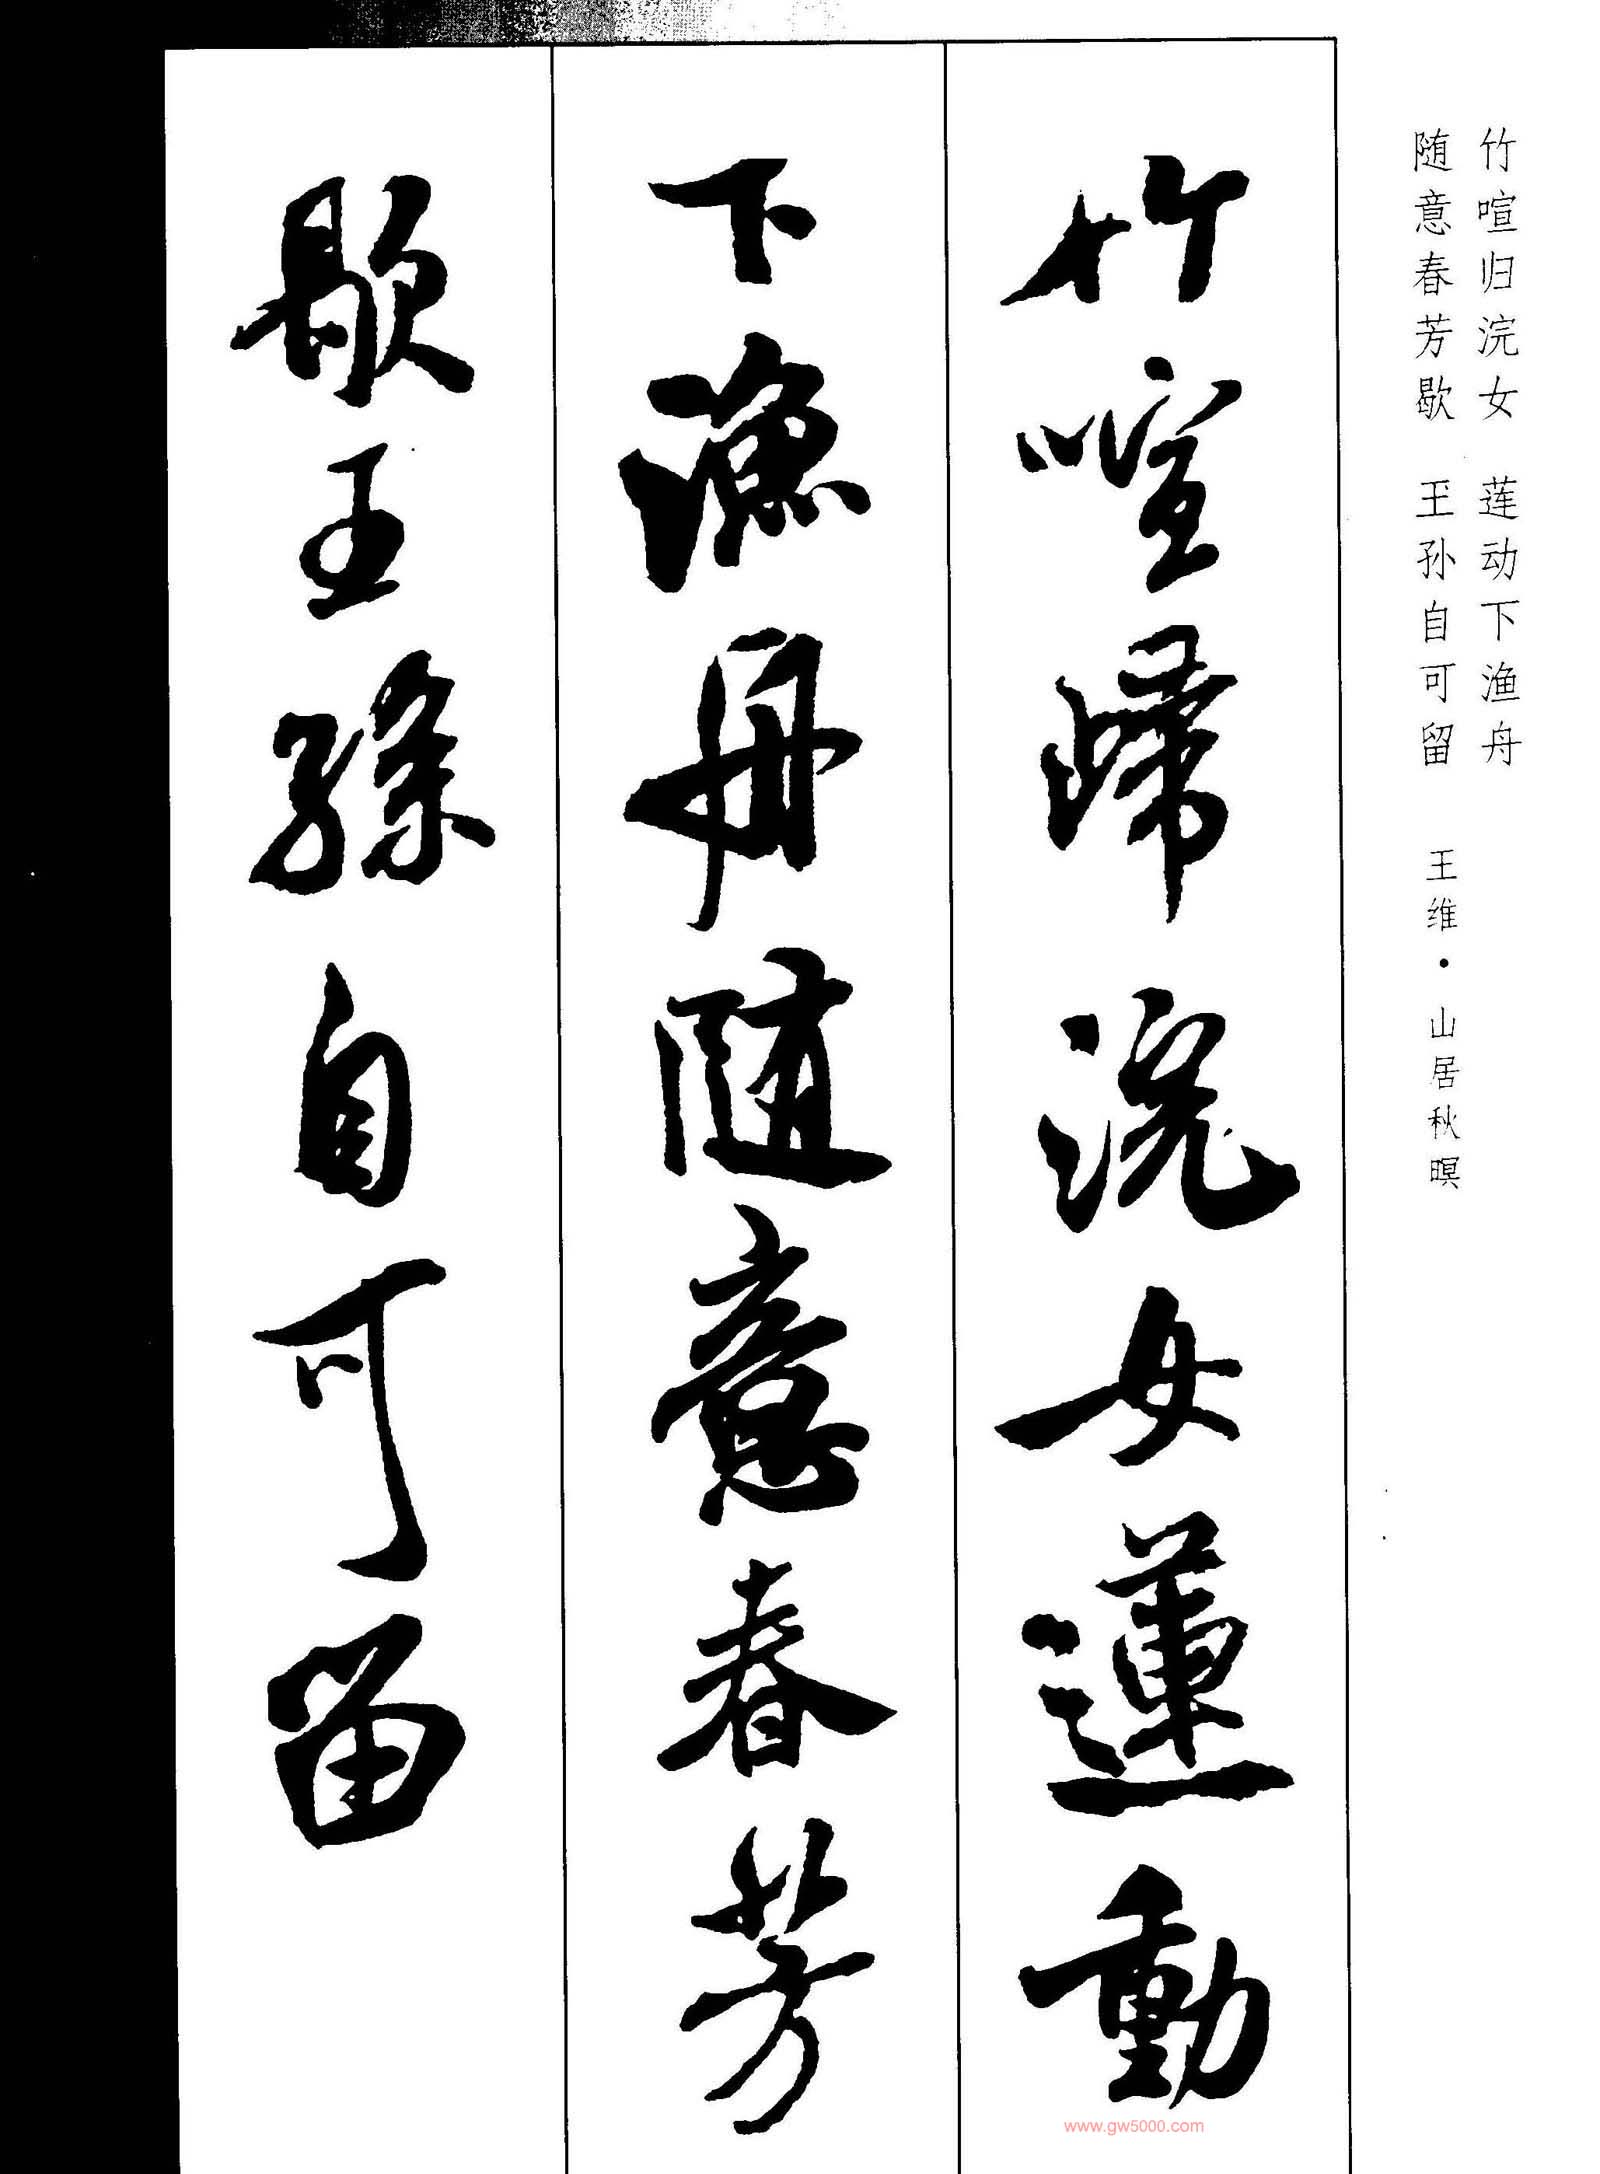 竹喧归浣女 莲动下渔舟
随意春芳歇 王孙自可留 王维·山居秋暝
竹喧歸浣女蓮動
下漁舟随意春芳
歇王孫自可留
www.gw5000.com